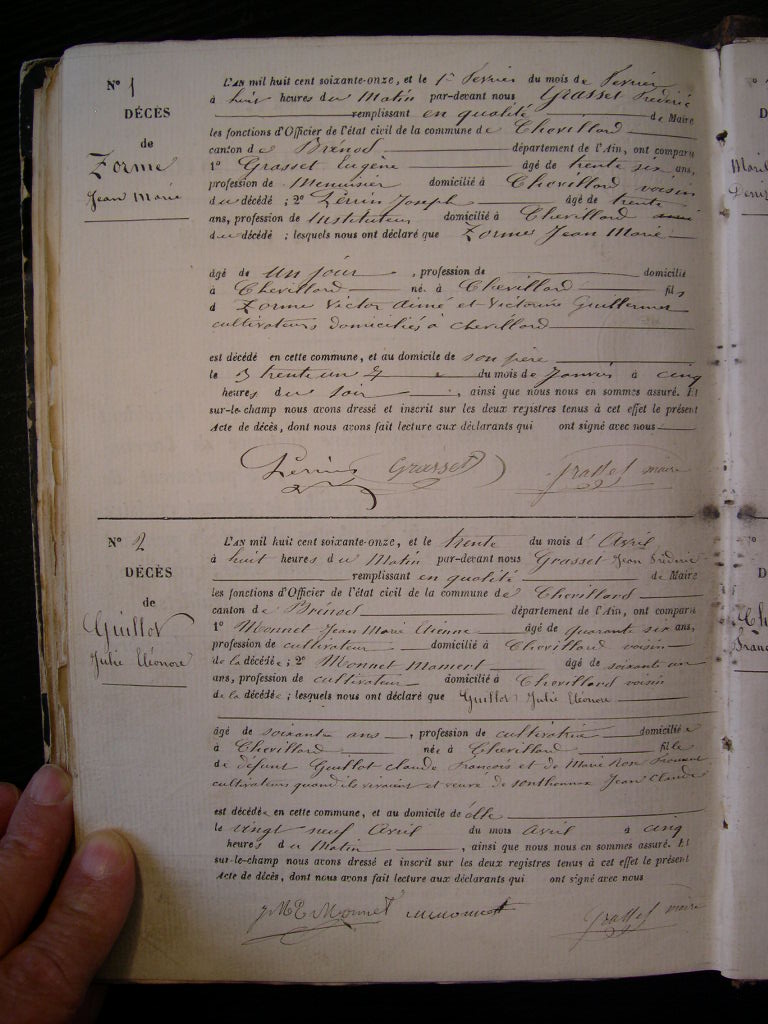 N° 1
DÉCÈS
de
Zorme
Jean Marie
L'AN mil huit cent soixante-onze, et le 1er Février du mois de Février
à huit heures du Matin par-devant nous Grasset Frédéric
remplissant en qualité de Maire
les fonctions d'Officier de l'état civil de la commune de Chevillard
canton de Brénod département de l'Ain, ont comparu
1° Grasset Eugène âgé de trente six ans,
profession de Menuisier domicilié à Chevillard voisin
du décédé ; 2° Perrin Joseph âgé de trente
ans, profession de Instituteur domicilié à Chevillard
du décédé ; lesquels nous ont déclaré que Zorme Jean Marie
âgé de un jour, profession de domicilié
à Chevillard né à Chevillard fils
d Zorme Victor Aimé et Victorine Guillermet
cultivateurs domiciliés à Chevillard
est décédé en cette commune, et au domicile de son père
le trente un du mois de Janvier à cinq
heures du soir, ainsi que nous nous en sommes assuré. Et
sur-le-champ nous avons dressé et inscrit sur les deux registres tenus à cet effet le présent
Acte de décès, dont nous avons fait lecture aux déclarants qui ont signé avec nous
Perrin Grasset Grasset maire
N° 2
DÉCÈS
de
Guillot
Julie Eléonore
L'AN mil huit cent soixante-onze, et le trente du mois d'Avril
à huit heures du Matin par-devant nous Grasset Jean Frédéric
remplissant en qualité de Maire
les fonctions d'Officier de l'état civil de la commune de Chevillard
canton de Brénod département de l'Ain, ont comparu
1° Monnet Jean Marie Etienne âgé de quarante six ans,
profession de cultivateur domicilié à Chevillard voisin
de la décédée ; 2° Monnet Mamert âgé de soixante un
ans, profession de cultivateur domicilié à Chevillard voisin
de la décédée ; lesquels nous ont déclaré que Guillot Julie Eléonore
âgé de soixante ans, profession de cultivatrice domiciliée
à Chevillard née à Chevillard fille
de défunt Guillot Claude François et de Marie Rose
cultivateurs quand ils vivaient et veuve de Sonthonnax Jean Claude
est décédée en cette commune, et au domicile de elle
le vingt neuf Avril du mois Avril à cinq
heures du Matin, ainsi que nous nous en sommes assuré. Et
sur-le-champ nous avons dressé et inscrit sur les deux registres tenus à cet effet le présent
Acte de décès, dont nous avons fait lecture aux déclarants qui ont signé avec nous
JME Monnet Grasset maire